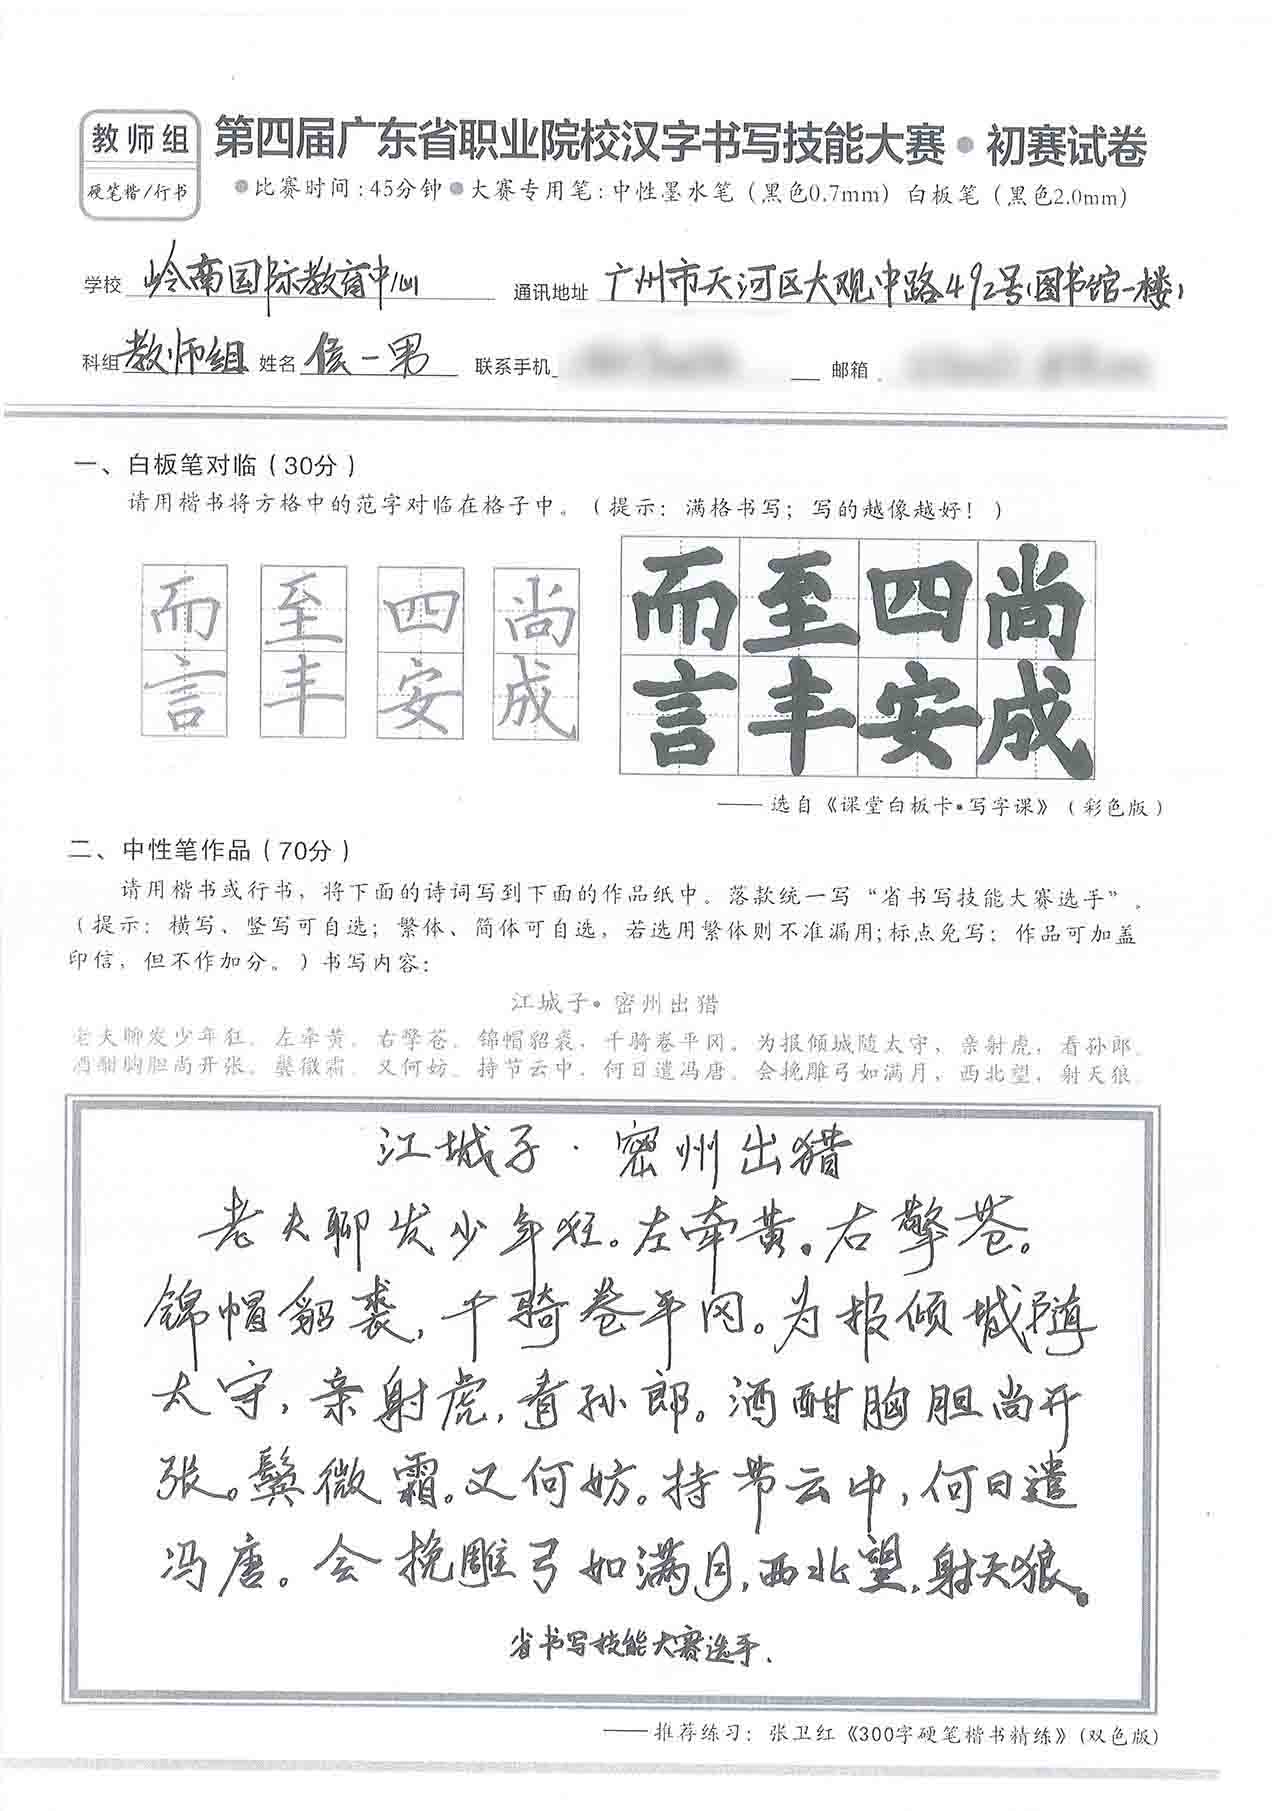 教师组
硬笔楷/行书
第四届广东省职业院校汉字书写技能大赛•初赛试卷
•比赛时间:45分钟•大赛专用笔:中性墨水笔（黑色0.7mm）白板笔（黑色2.0mm）
学校 岭南国际教育中心 通讯地址 广州市天河区大观中路492号(图书馆一楼)
科组 教师组 姓名 侯一男 联系手机 邮箱
一、白板笔对临（30分）
请用楷书将方格中的范字对临在格子中。（提示：满格书写；写的越像越好！）
而 至 四 尚 而 至 四 尚
言 丰 安 成 言 丰 安 成
——选自《课堂白板卡•写字课》（彩色版）
二、中性笔作品（70分）
请用楷书或行书，将下面的诗词写到下面的作品纸中。落款统一写“省书写技能大赛选手”。
（提示：横写、竖写可自选；繁体、简体可自选，若选用繁体则不准漏用;标点免写；作品可加盖
印信，但不作加分。）书写内容：
江城子•密州出猎
老夫聊发少年狂。左牵黄。右擎苍。锦帽貂裘，千骑卷平冈。为报倾城随太守，亲射虎，看孙郎。
酒酣胸胆尚开张。鬓微霜。又何妨。持节云中，何日遣冯唐。会挽雕弓如满月，西北望，射天狼。
江城子·密州出猎
老夫聊发少年狂。左牵黄。右擎苍。
锦帽貂裘，千骑卷平冈。为报倾城随
太守，亲射虎，看孙郎。酒酣胸胆尚开
张。鬓微霜。又何妨。持节云中，何日遣
冯唐。会挽雕弓如满月，西北望，射天狼。
省书写技能大赛选手.
——推荐练习：张卫红《300字硬笔楷书精练》(双色版)